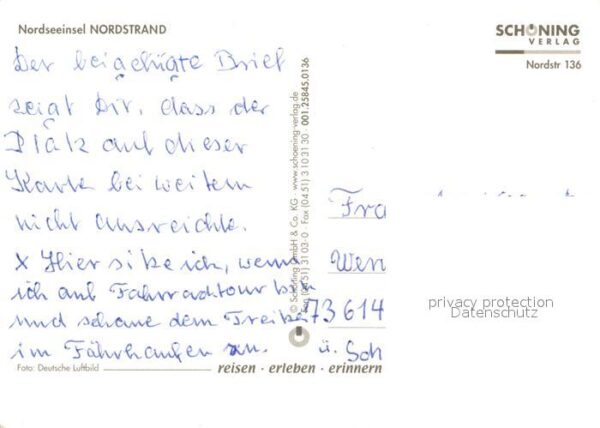 Nordseeinsel NORDSTRAND
SCHÖNING
VERLAG
Nordstr 136
Der beigefügte Brief
zeigt Dir, dass der
Platz auf dieser
Karte bei weitem
nicht ausreichte.
X Hier sitze ich, wenn
ich auf Fahrradtour bin
und schaue dem Treiben
im Fährhafen zu.
© Schöning GmbH & Co. KG · www.schoening-verlag.de
Fax (04 51) 3 10 31 30 001.25845.0136
Fra
Wen
73 614
ü. Sch
privacy protection
Datenschutz
Foto: Deutsche Luftbild
reisen · erleben · erinnern